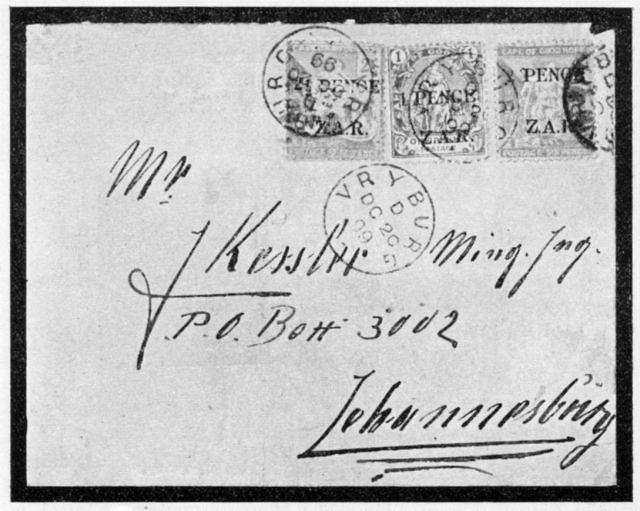 2½ PENCE
Z.A.R.
1
PENCE
Z.A.R.
CAPE OF GOOD HOPE
PENCE
Z.A.R.
VRYBURG
D
DC 20
99
Mr
J Kessler Ming. Ing.
P.O. Box 3002
Johannesburg